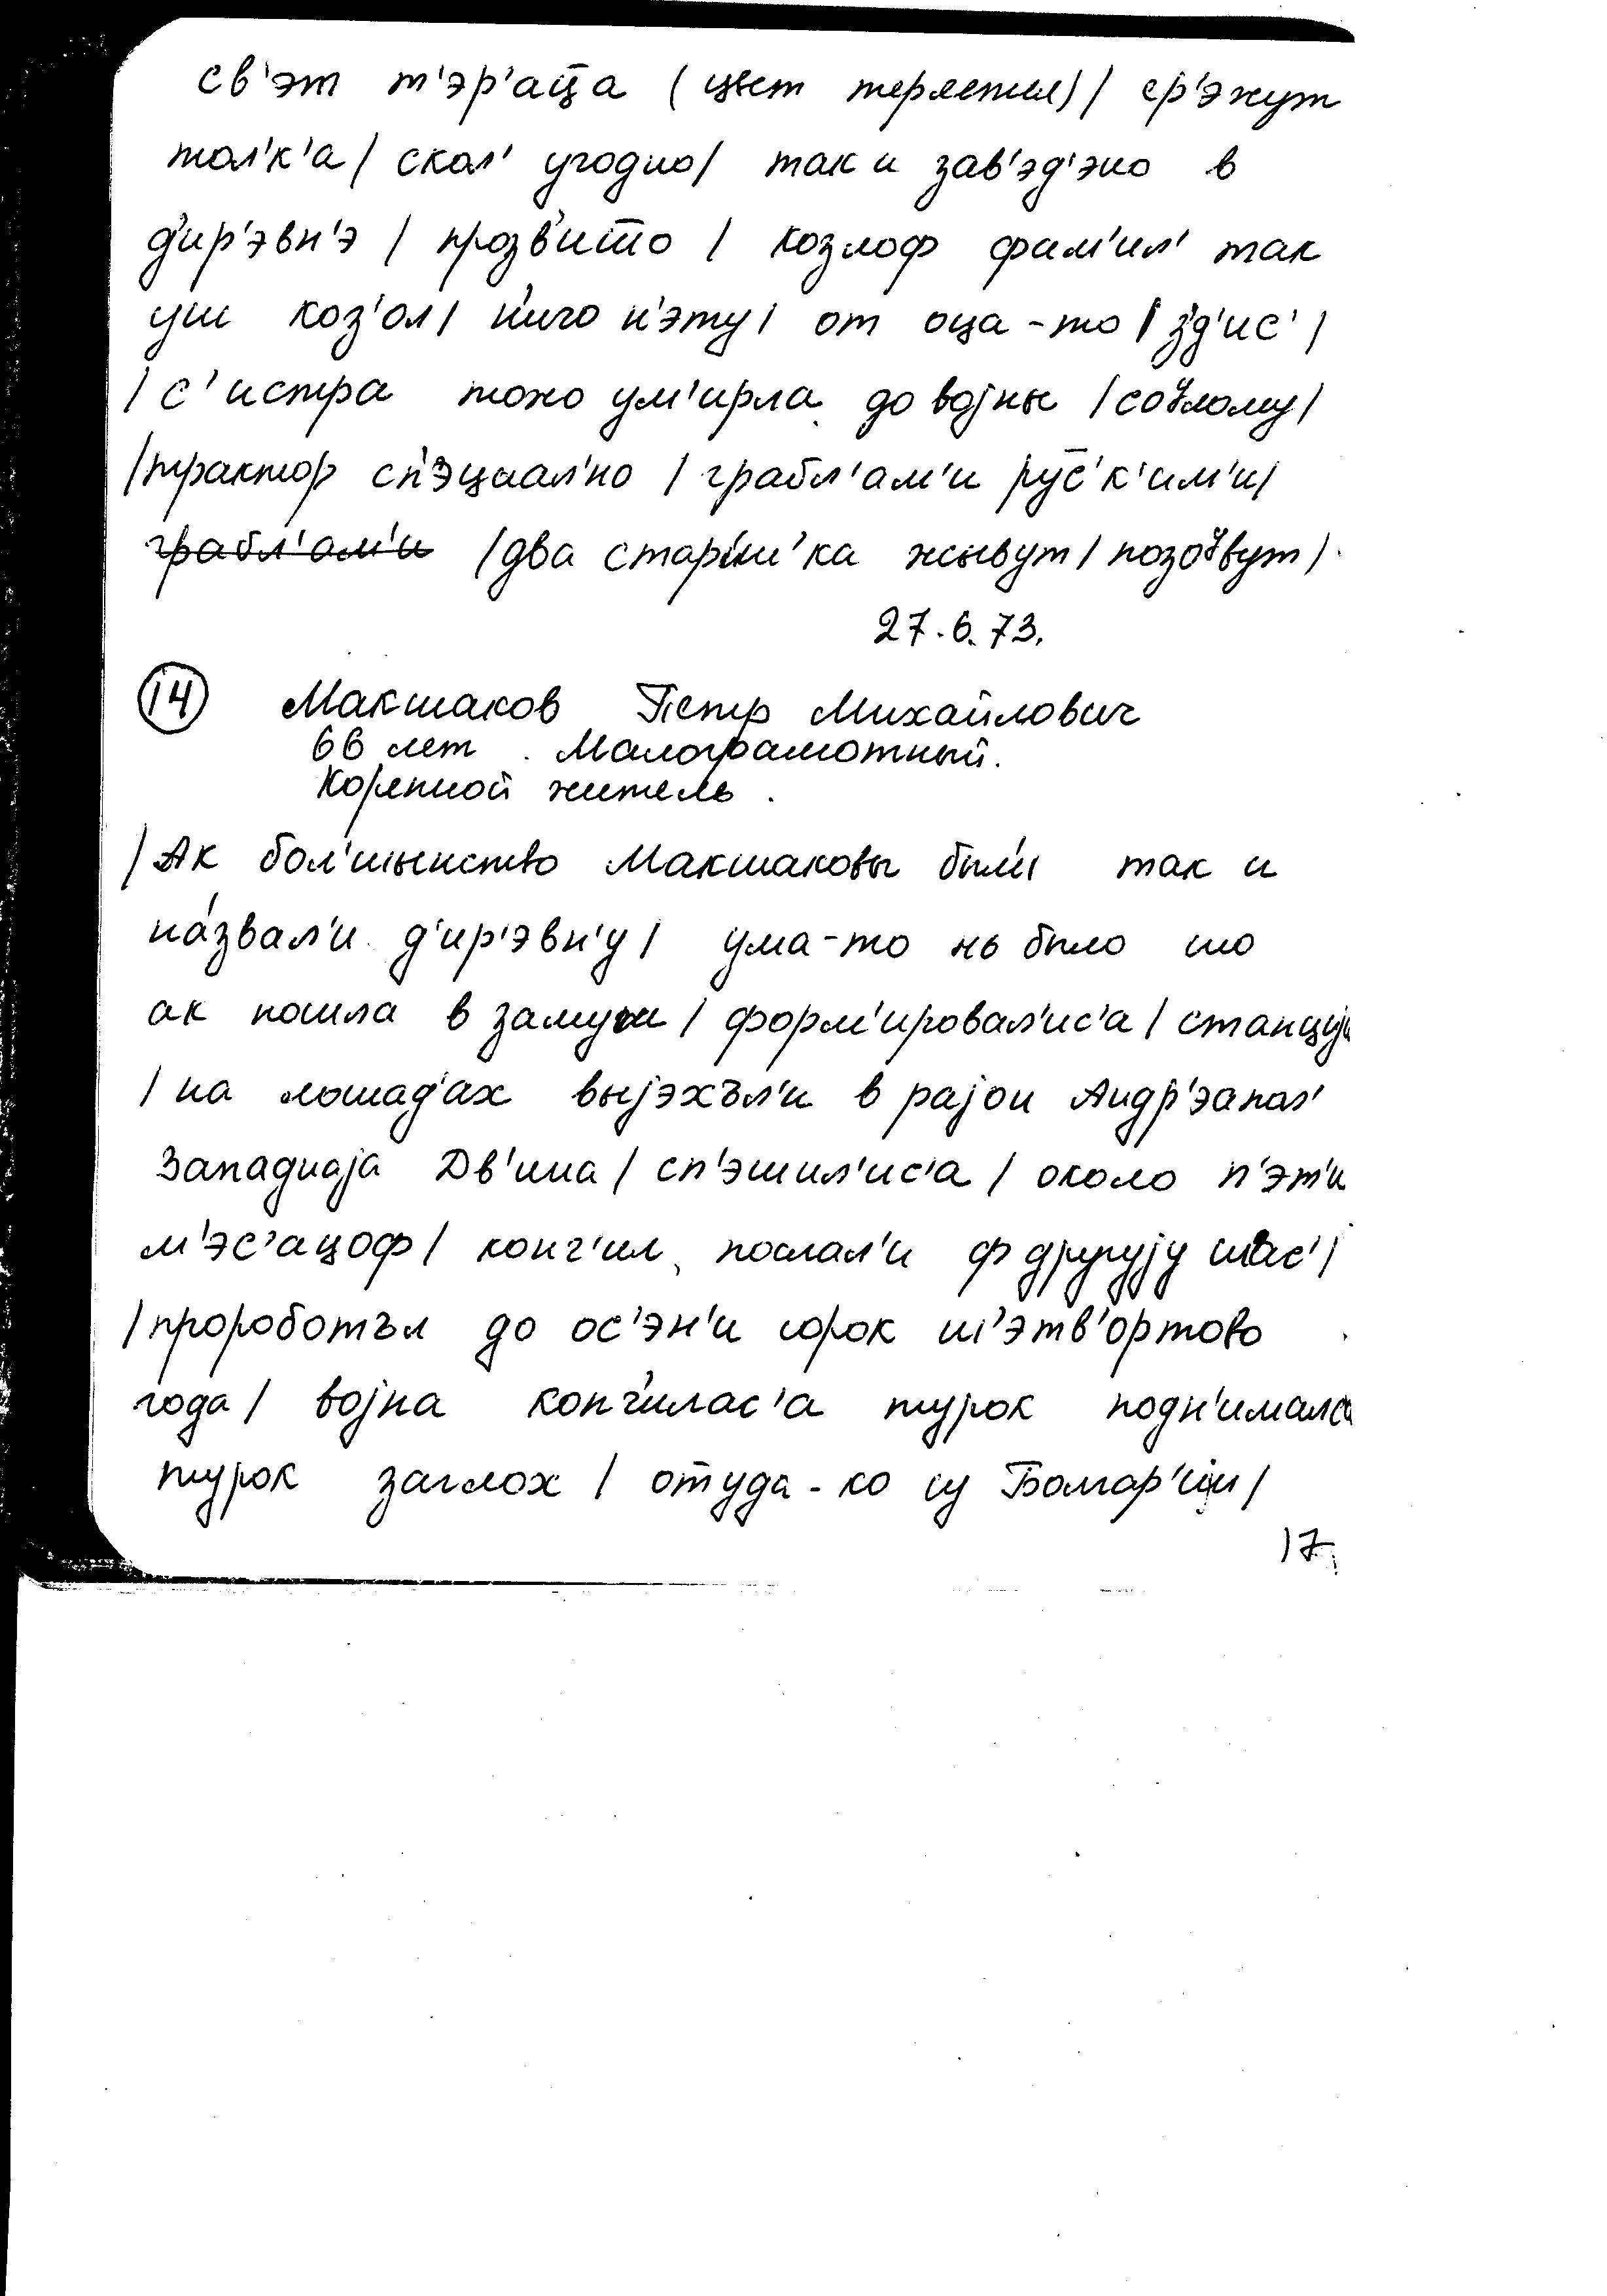 св'эт т'эр'аца̄ (цвет теряется) / ср'эжут
тол'к'а / скол' угодно / так и зав'эд'эно в
д'ир'эвн'э / прозв'ит̄о / козлоф фам'ил' так
уш коз'ол / н'иго н'эту / от оца-то / з'д'ис' /
/ с'истра тожо ум'ирла до војны / соўлому /
/ трактор сп'эцыал'но / грабл'ам'и рус̄'к'им'и /
грабл'ам'и / два стар'иш'ка жывут / позоўвут /
27.6.73.
14 Макшаков Петр Михайлович
66 лет. Малограмотный.
Коренной житель.
/ Ак бол'шынство Макшаковы был'и так и
на́звал'и д'ир'эвн'у / ума-то нь было шо
ак пошла в замуш / форм'ировал'ис'а / станцују
/ на лошад'ах выјэхъл'и в рајон Андр'эапол'
Западнаја Дв'ина / сп'эшил'ис'а / около п'эт'и
м'эс'ацоф / конч'ил послал'и ф другују шас' /
/ пророботъл до ос'эн'и сорок ш'этв'ортово
года / војна конч'илас'а турок подн'имало
турок заглох / от̄уда-ко су Болгар'ији /
17.